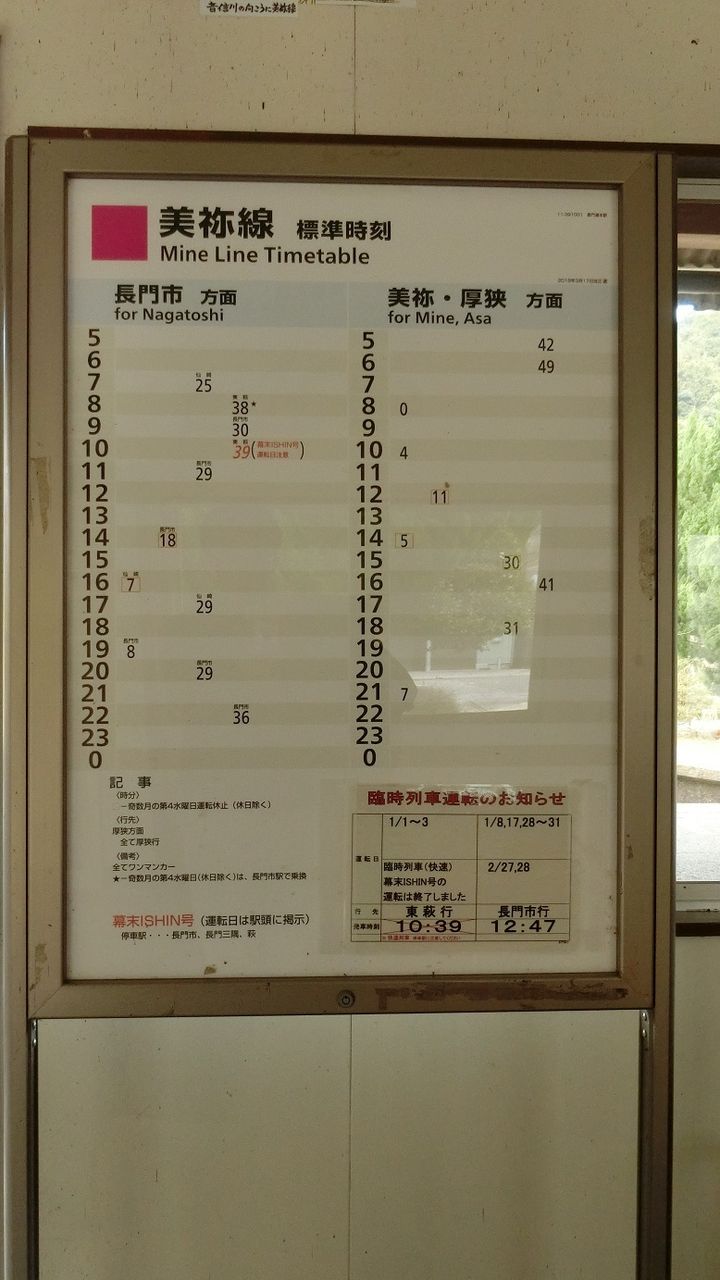 音信川の向こうに美祢線
美祢線 標準時刻
Mine Line Timetable
長門市 方面
for Nagatoshi
5
6
7 仙崎 25
8 東萩 38★
9 長門市 30
10 東萩 39(幕末ISHIN号 運転日注意)
11 長門市 29
12
13
14 長門市 18
15
16 仙崎 7
17 仙崎 29
18
19 長門市 8
20 長門市 29
21
22 長門市 36
23
0
美祢・厚狭 方面
for Mine, Asa
5 42
6 49
7
8 0
9
10 4
11
12 11
13
14 5
15 30
16 41
17
18 31
19
20
21 7
22
23
0
記 事
〈時分〉
□－奇数月の第4水曜日運転休止（休日除く）
〈行先〉
厚狭方面
全て厚狭行
〈備考〉
全てワンマンカー
★－奇数月の第4水曜日(休日除く)は、長門市駅で乗換
幕末ISHIN号（運転日は駅頭に掲示）
停車駅・・・長門市、長門三隅、萩
臨時列車運転のお知らせ
運転日
1/1～3 1/8,17,28～31
臨時列車(快速) 2/27,28
幕末ISHIN号の
運転は終了しました
行 先 東萩行 長門市行
発車時刻 10:39 12:47